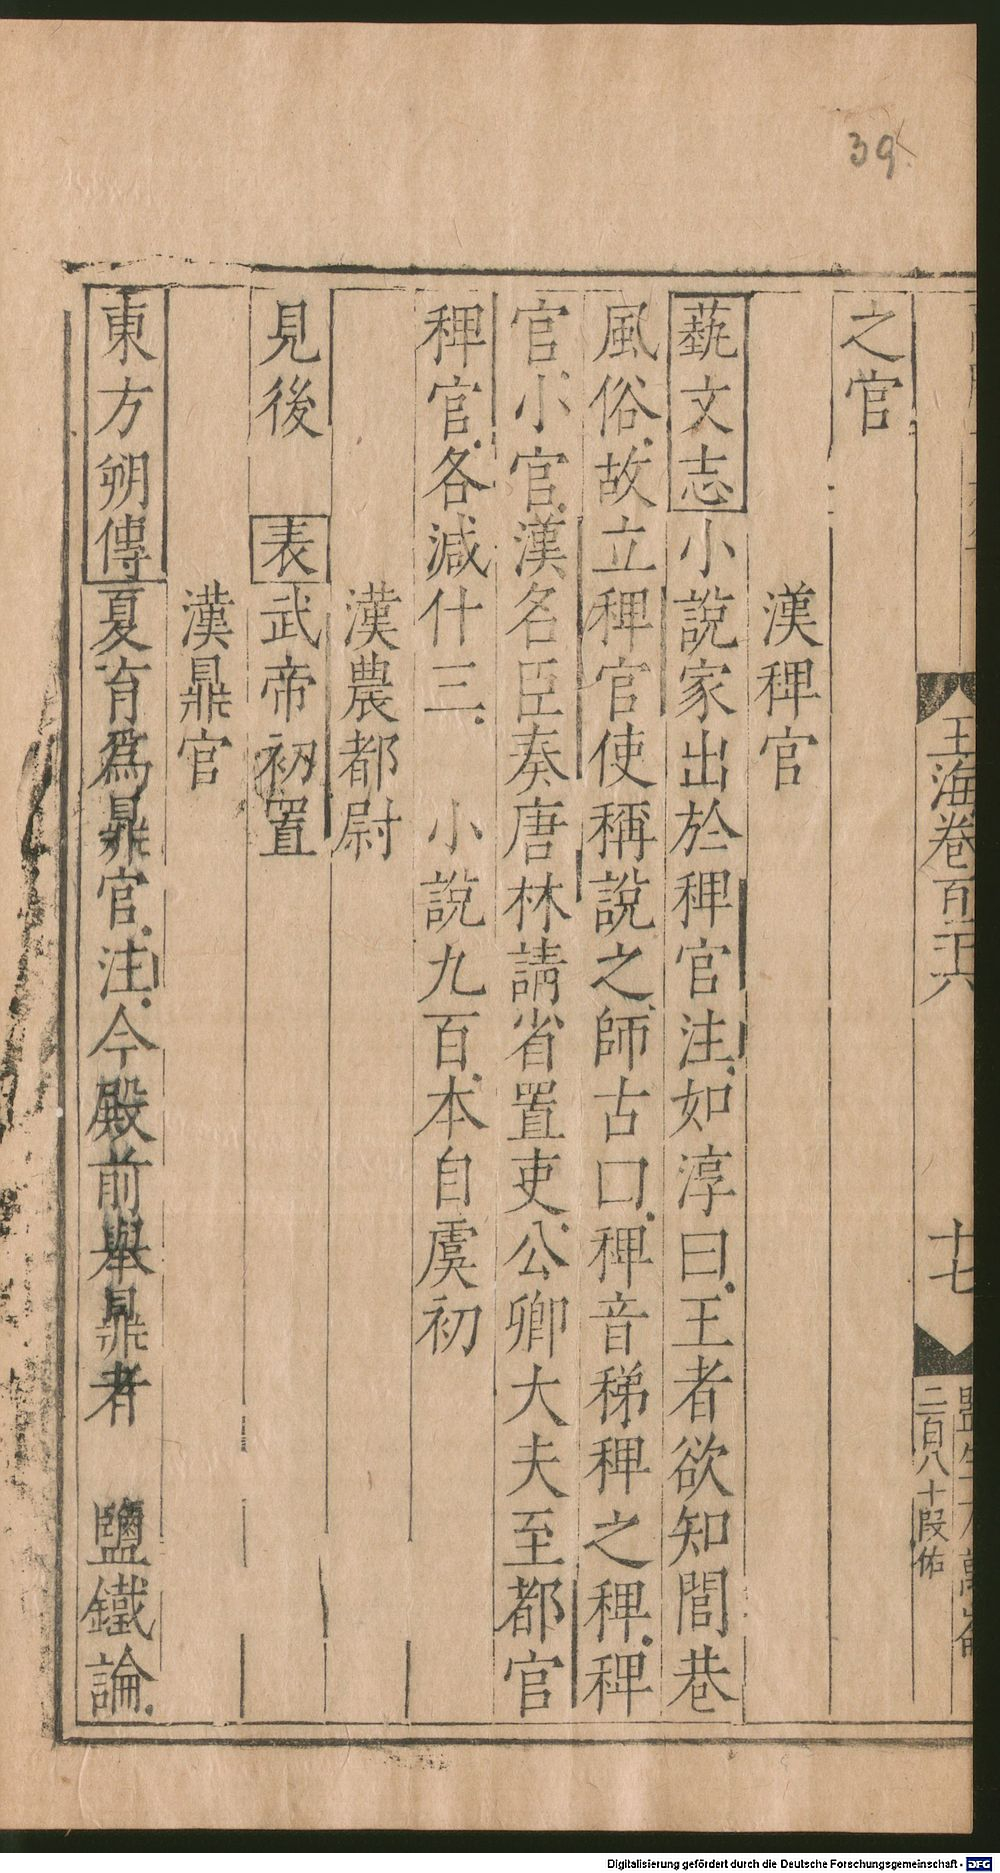 39
玉海卷百三十六
十七
二百八十段佑
之官
漢稗官
藝文志小說家出於稗官注如淳曰王者欲知閭巷
風俗故立稗官使稱說之師古曰稗音稊稗之稗稗
官小官漢名臣奏唐林請省置吏公卿大夫至都官
稗官各減什三　小說九百本自虞初
漢農都尉
見後　表武帝初置
漢鼎官
東方朔傳夏育爲鼎官注今殿前舉鼎者　鹽鐵論
Digitalisierung gefördert durch die Deutsche Forschungsgemeinschaft - DFG